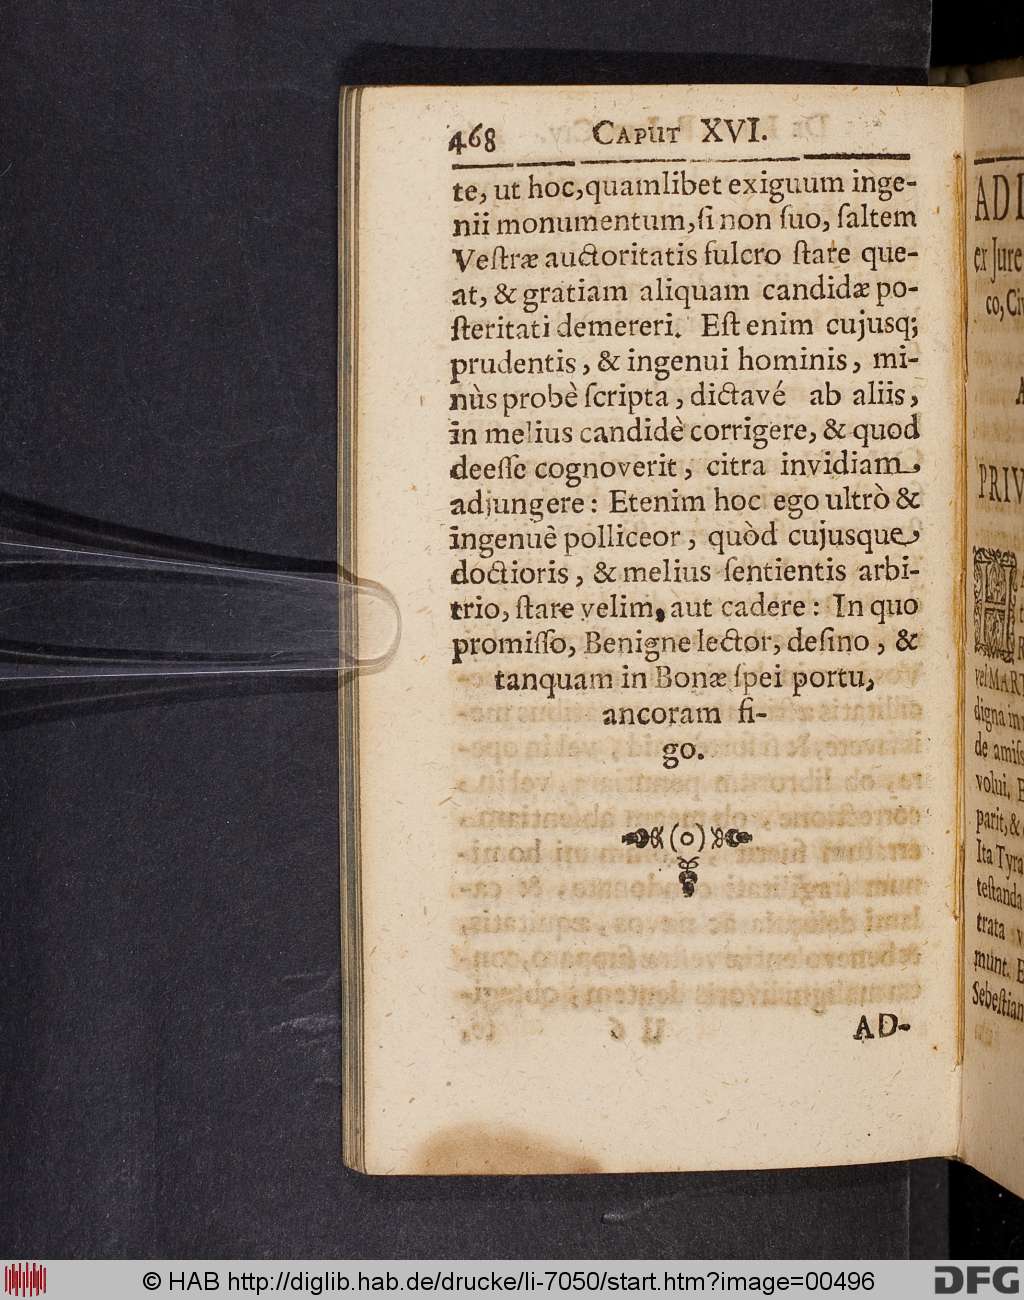 468 CAPUT XVI.
te, ut hoc, quamlibet exiguum inge-
nii monumentum, ſi non ſuo, ſaltem
Veſtræ auctoritatis fulcro ſtare que-
at, & gratiam aliquam candidæ po-
ſteritati demereri. Eſt enim cujusq;
prudentis, & ingenui hominis, mi-
nùs probè ſcripta, dictavé ab aliis,
in melius candidè corrigere, & quod
deeſſe cognoverit, citra invidiam,
adjungere: Etenim hoc ego ultrò &
ingenuè polliceor, quòd cujusque,
doctioris, & melius ſentientis arbi-
trio, ſtare velim, aut cadere: In quo
promiſſo, Benigne lector, deſino, &
tanquam in Bonæ ſpei portu,
ancoram fi-
go.
(o)
AD-
AD I
ex Jure
co, Civ
PRIV
veſ MART
digna in
de amiſſ
volui. E
parit, &
Ita Tyra
teſtanda
trata v
munt. E
Sebeſtian
© HAB http://diglib.hab.de/drucke/li-7050/start.htm?image=00496
DFG